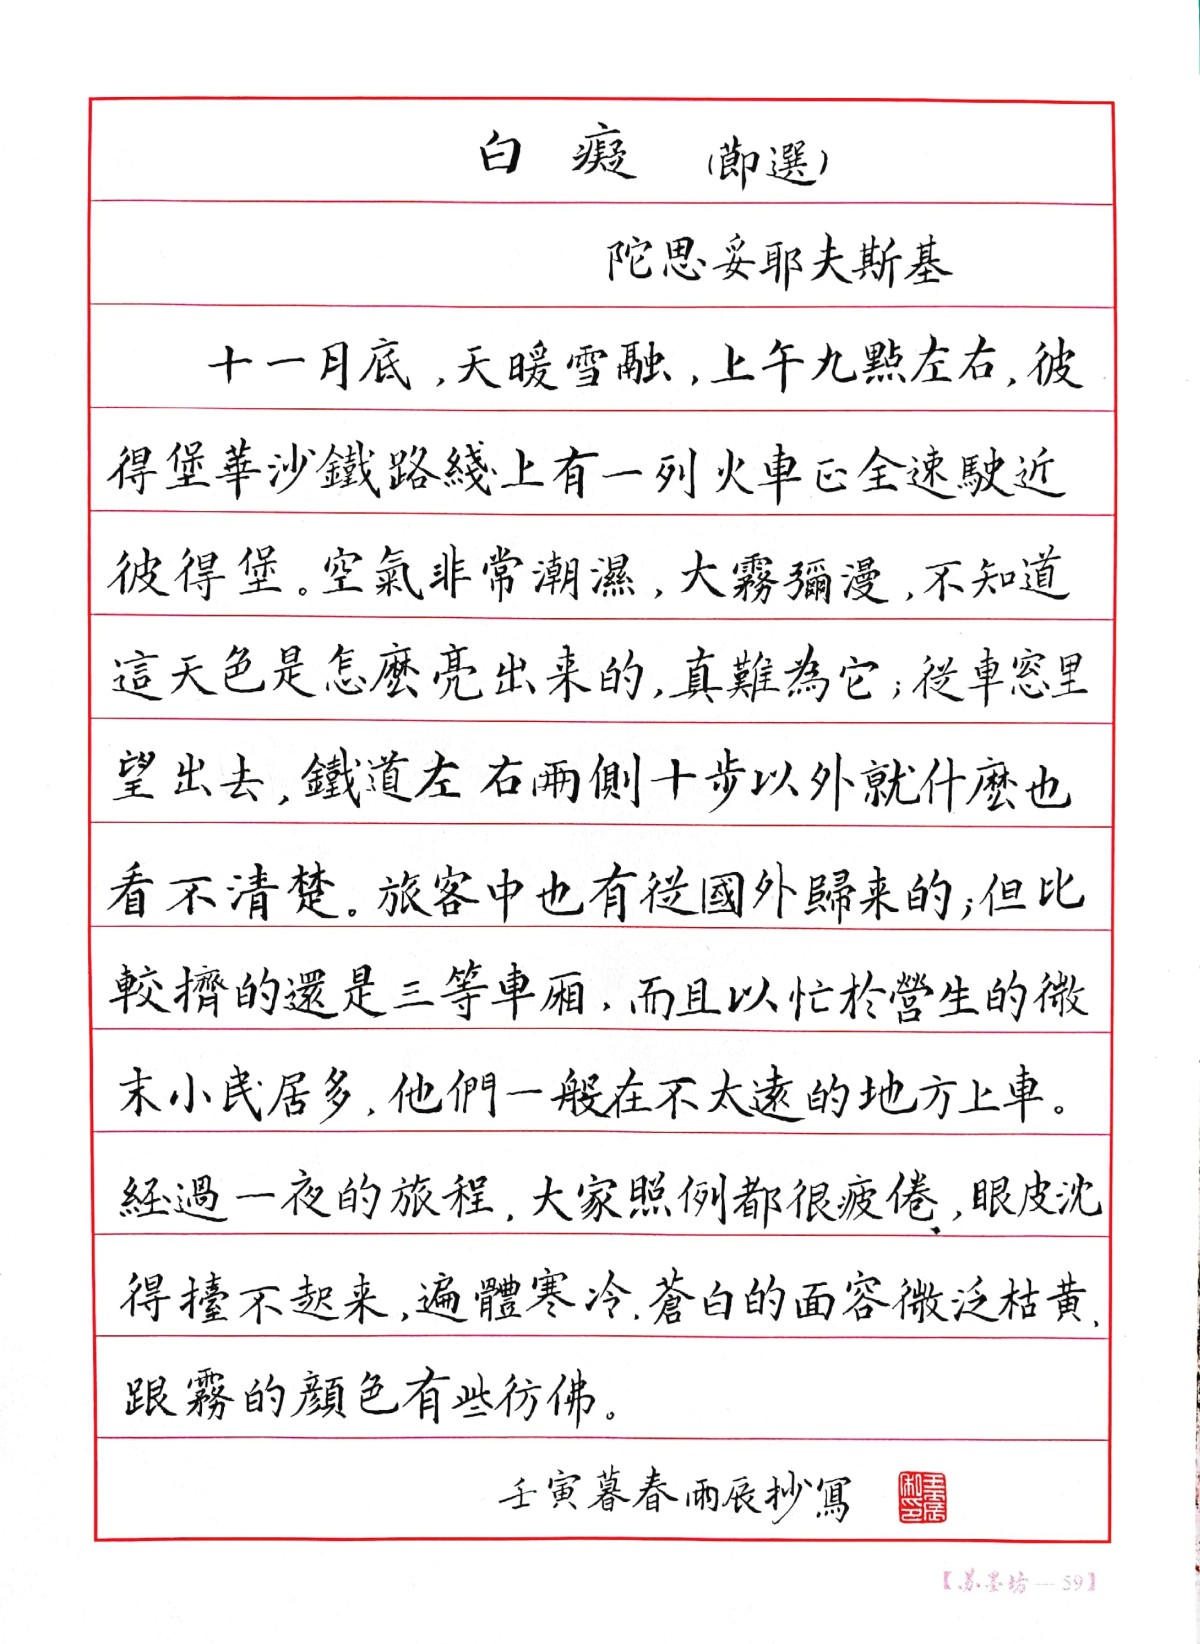 白癡（節選）
陀思妥耶夫斯基
十一月底，天暖雪融，上午九點左右，彼
得堡華沙鐵路綫上有一列火車正全速駛近
彼得堡。空氣非常潮濕，大霧彌漫，不知道
這天色是怎麽亮出来的，真難為它；從車窓里
望出去，鐵道左右兩側十步以外就什麽也
看不清楚。旅客中也有從國外歸来的；但比
較擠的還是三等車厢，而且以忙於營生的微
末小民居多，他們一般在不太遠的地方上車。
經過一夜的旅程，大家照例都很疲倦，眼皮沈
得擡不起来，遍體寒冷，蒼白的面容微泛枯黄，
跟霧的顔色有些彷佛。
壬寅暮春雨辰抄寫
【苏墨坊—59】